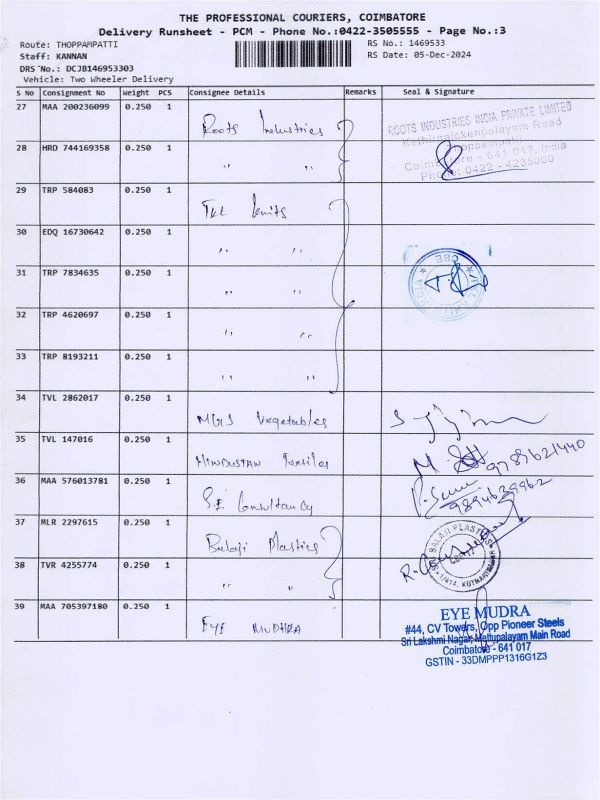 THE PROFESSIONAL COURIERS, COIMBATORE
Delivery Runsheet - PCM - Phone No.:0422-3505555 - Page No.:3
Route: THOPPAMPATTI
RS No.: 1469533
Staff: KANNAN
RS Date: 05-Dec-2024
DRS No.: DCJB146953303
Vehicle: Two Wheeler Delivery
S No Consignment No Weight PCS Consignee Details Remarks Seal & Signature
27 MAA 200236099 0.250 1 Roots Industries
ROOTS INDUSTRIES INDIA PRIVATE LIMITED
Kathirnaickenpalayam Road
Thoppampatti
Coimbatore - 641 017, India
Phone: 0422 - 4235000
28 HRD 744169358 0.250 1 " "
29 TRP 584083 0.250 1 TKL Knits
30 EDQ 16730642 0.250 1 " "
CBE
31 TRP 7834635 0.250 1 " "
32 TRP 4620697 0.250 1 " "
33 TRP 8193211 0.250 1 " "
34 TVL 2862017 0.250 1 MGS Vegetables
35 TVL 147016 0.250 1 HINDUSTAN Textiles
9789621440
36 MAA 576013781 0.250 1 S.E Consultancy
9894639962
37 MLR 2297615 0.250 1 Balaji Plastics
SRI BALAJI PLASTICS
38 TVR 4255774 0.250 1 " "
39 MAA 705397180 0.250 1 EYE MUDHRA
EYE MUDRA
#44, CV Towers, Opp Pioneer Steels
Sri Lakshmi Nagar, Mettupalayam Main Road
Coimbatore - 641 017
GSTIN - 33DMPPP1316G1Z3